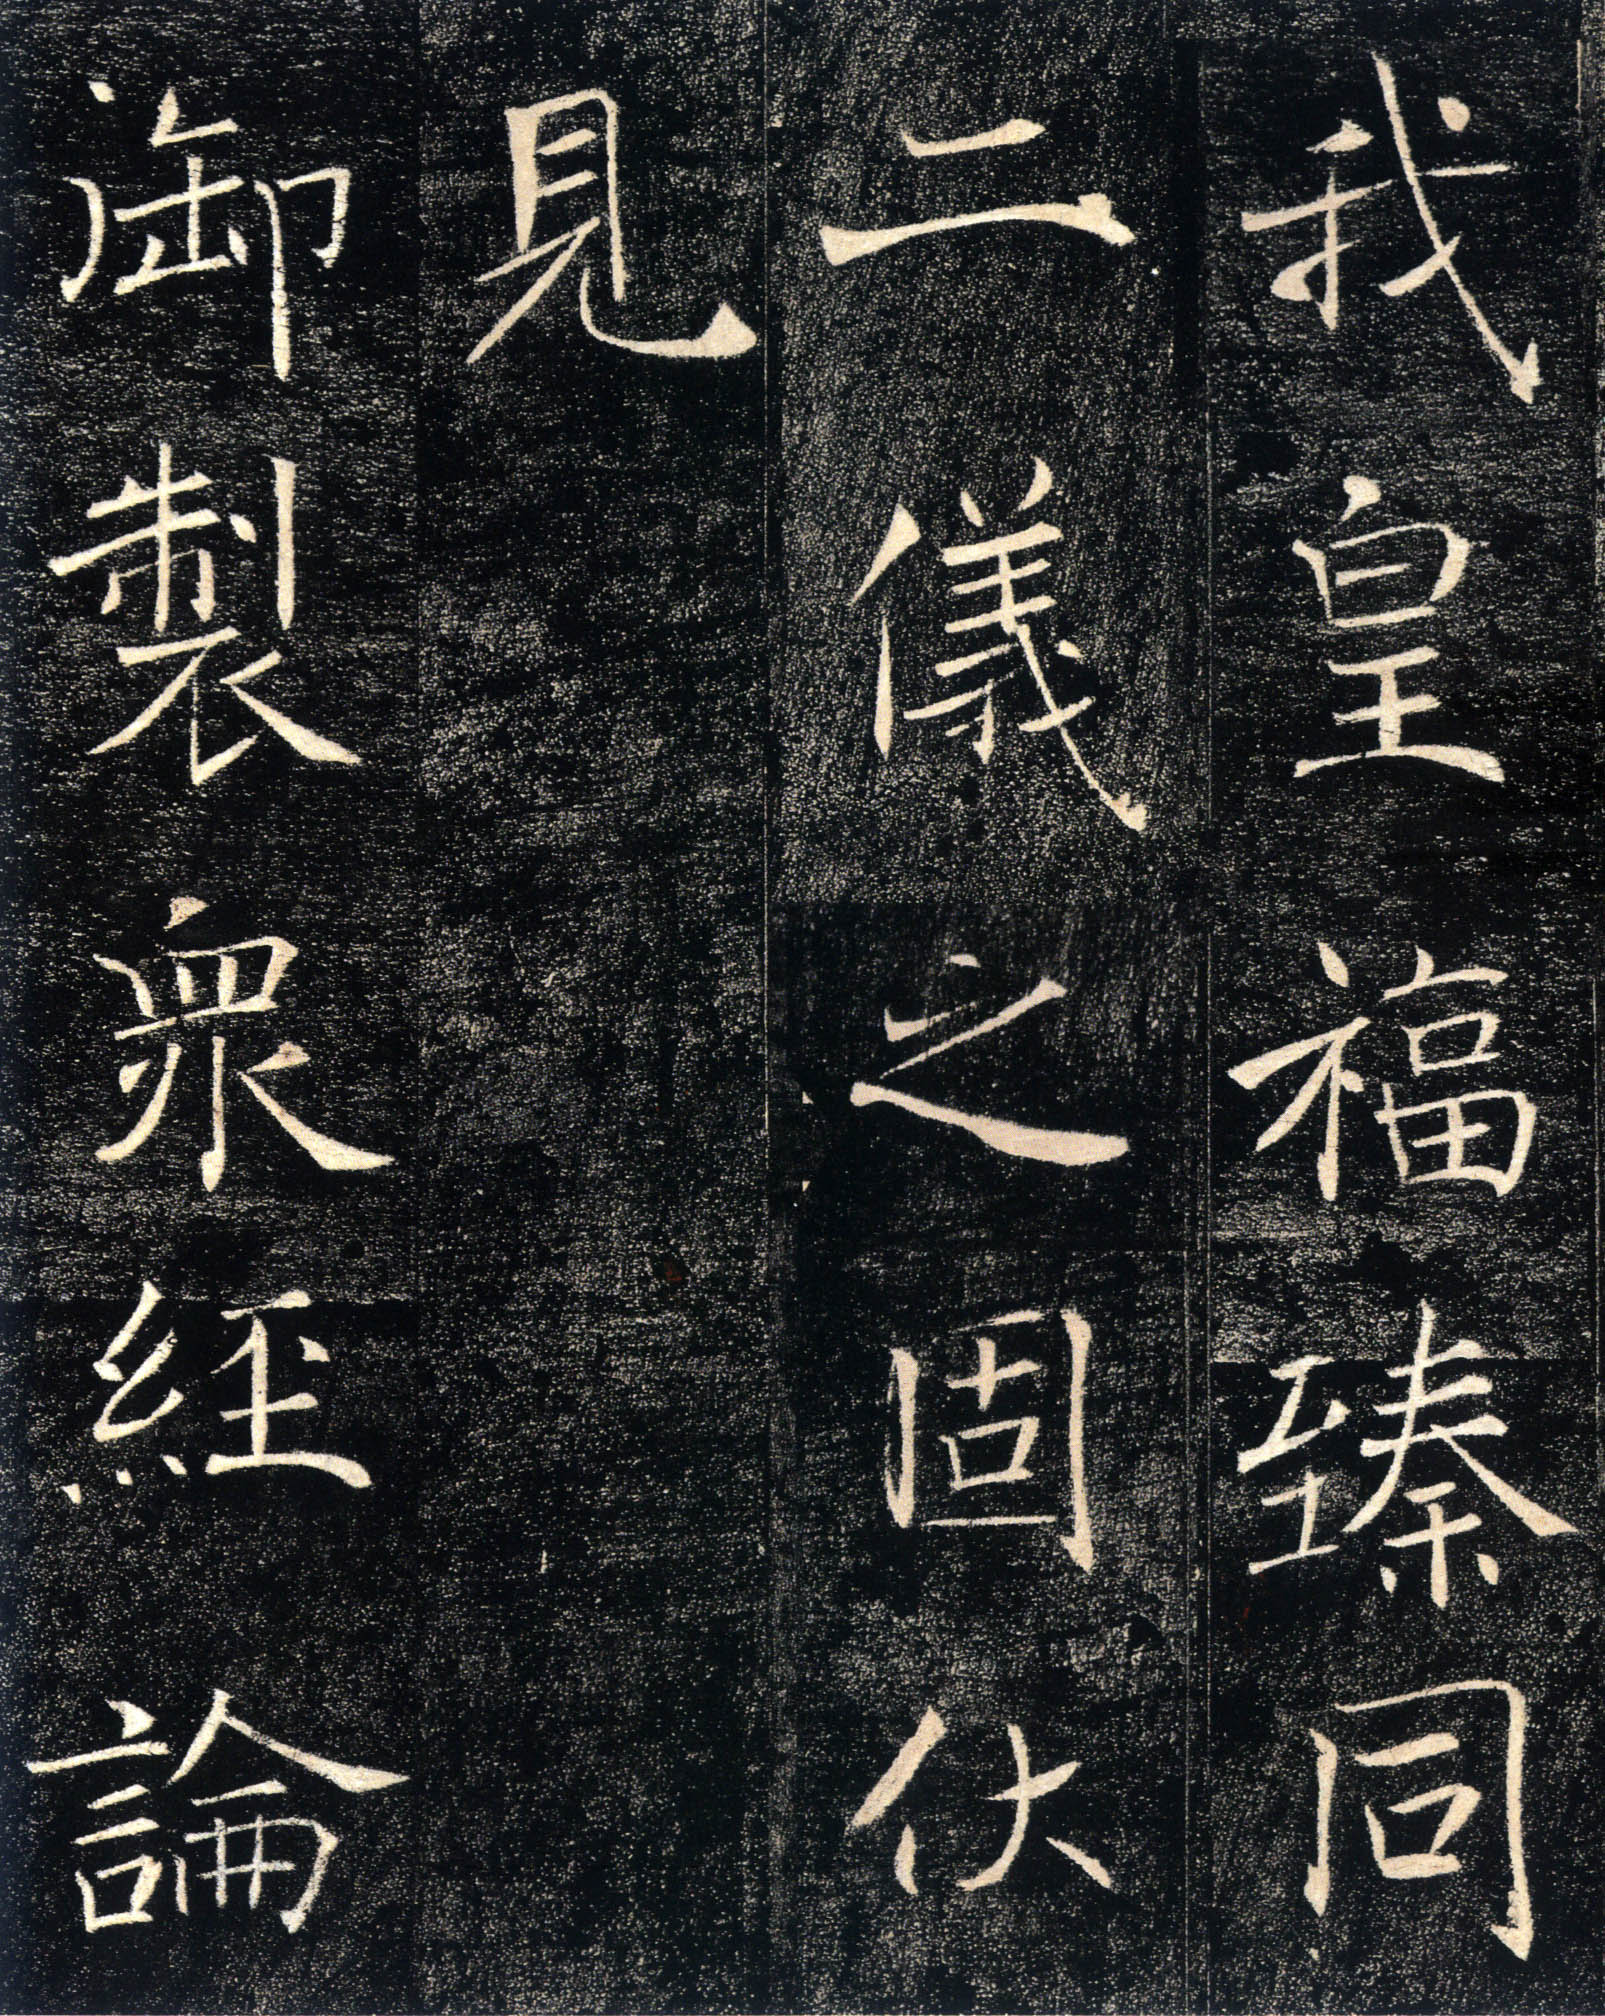 我皇福臻同
二儀之固伏
見
御製眾經論